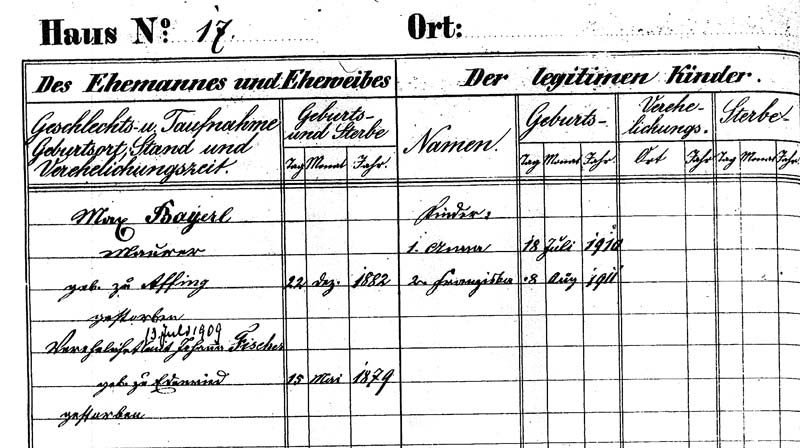 Haus No: 17.
Ort:
Des Ehemannes und Eheweibes
Der legitimen Kinder.
Geschlechts- u. Taufnahme
Geburtsort, Stand und
Verehelichungszeit.
Geburts-
und Sterbe
Tag Monat Jahr.
Namen.
Geburts-
Tag Monat Jahr.
Verehe-
lichungs.
Ort Jahr
Sterbe-
Tag Monat Jahr
Max Bayerl
Kinder:
Maurer
1. Anna 18 Juli 1910
geb. zu Affing 22 Dez. 1882
2. Franziska 8 Aug 1911
gestorben
13 Juli 1909
Verehelicht mit Johanna Fischer
geb. zu Edenried 15 Mai 1879
gestorben